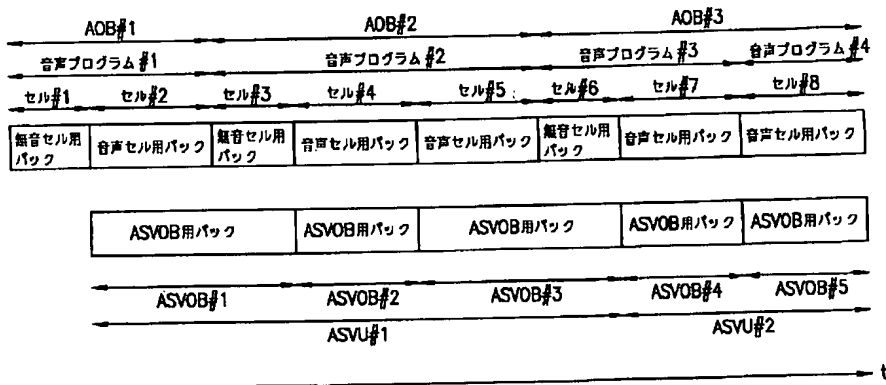 AOB#1 AOB#2 AOB#3
音声プログラム#1 音声プログラム#2 音声プログラム#3 音声プログラム#4
セル#1 セル#2 セル#3 セル#4 セル#5 セル#6 セル#7 セル#8
無音セル用パック 音声セル用パック 無音セル用パック 音声セル用パック 音声セル用パック 無音セル用パック 音声セル用パック 音声セル用パック
ASVOB用パック ASVOB用パック ASVOB用パック ASVOB用パック ASVOB用パック
ASVOB#1 ASVOB#2 ASVOB#3 ASVOB#4 ASVOB#5
ASVU#1 ASVU#2
t